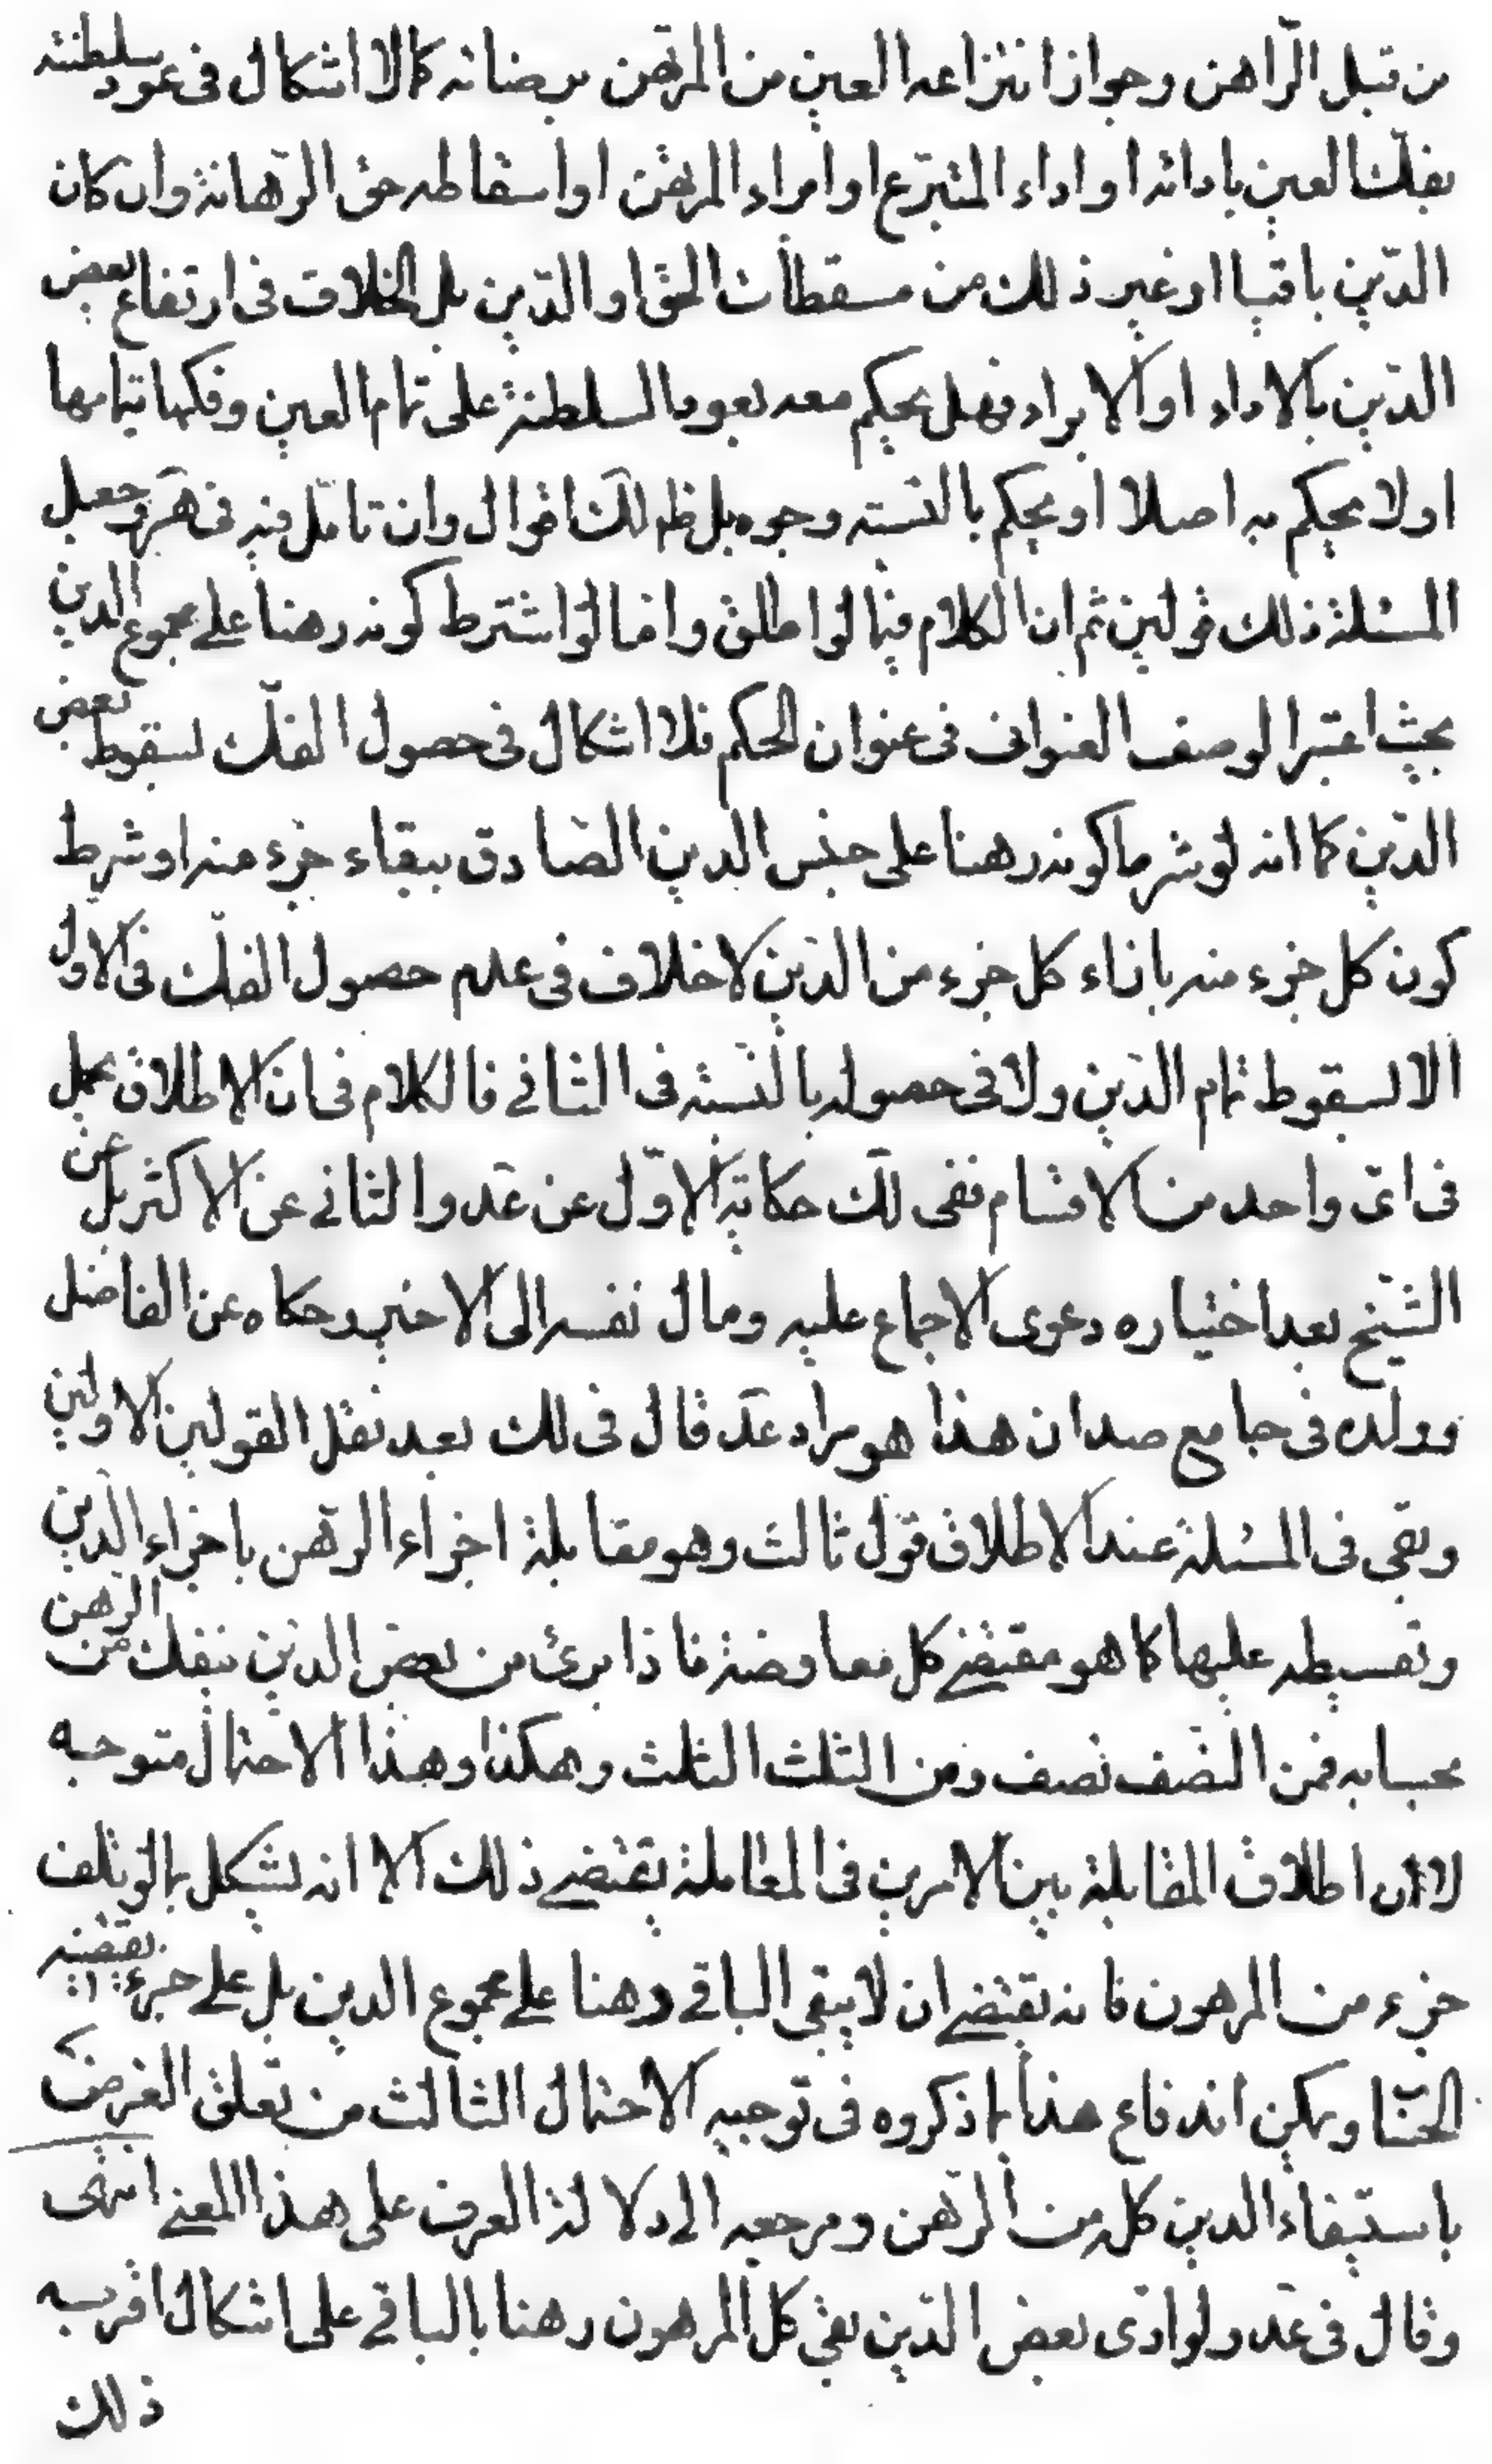 من قبل الرّاهن وجواز انتزاعه العين من المرتهن برضائه كما لا اشكال فى عود سلطنته
بفكّ العين بادائه او اداء المتبرّع او ابراء المرتهن او اسقاطه حق الرّهانة وان كان
الدّين باقيا او غير ذلك من مسقطات الحق او الدّين بل الخلاف فى ارتفاع بعض
الدّين بالاداء او الابراء فهل يحكم معه بعود السلطنة على تمام العين وفكها بتمامها
او لا يحكم به اصلا او يحكم بالنسبته وجوه بل ظم لك اقوال وان تامّل فيه فى هر وجعل
المسئلة ذلك قولين ثم ان الكلام فيما لو اطلق وامّا لو اشترط كونه رهنا على مجموع الدين
بحيث اعتبر الوصف العنوانى فى عنوان الحكم فلا اشكال فى حصول الفكّ لسقوط بعض
الدّين كما انه لو شرط كونه رهنا على جنس الدين الصّادق ببقاء جزء منه او شرط
كون كل جزء منه بازاء كل جزء من الدّين لا خلاف فى عدم حصول الفكّ فى الاول
الا لسقوط تمام الدّين ولا فى حصوله بالنسبته فى الثانى فالكلام فى ان الاطلاق يحمل
فى اىّ واحد من الاقسام ففى لك حكاية الاوّل عن عد والثانى عن الاكثر بل عن
الشّيخ بعد اختياره دعوى الاجماع عليه ومال نفسه الى الاخير وحكاه عن الفاضل
وولده فى جامع صد ان هذا هو مراد عد قال فى لك بعد نقل القولين الاولين
وبقى فى المسئلة عند الاطلاق قول ثالث وهو مقابلة اجزاء الرّهن باجزاء الدّين
وتقسيطه عليها كما هو مقتضى كل معاوضة فاذا برئ من بعض الدين ينفك من الرهن
بحسابه فمن النصف نصف ومن الثلث الثلث وهكذا وهذا الاحتمال متوجه
لان اطلاق المقابلة بين الامرين فى المعاملة يقتضى ذلك الا انه يشكل بما لو تلف
جزء من المرهون فانه يقتضى ان لا يبقى الباقى رهنا على مجموع الدين بل على جزء يقتضيه
الحسّا ويمكن اندفاع هذا بما ذكروه فى توجيه الاحتمال الثالث من تعلق الغرض
باستيفاء الدين كله من الرّهن ومرجعه الى دلالة العرف على هذا المعنى انتهى
وقال فى عد ولو ادّى بعض الدّين بقى كل المرهون رهنا بالباقى على اشكال اقربه
ذلك